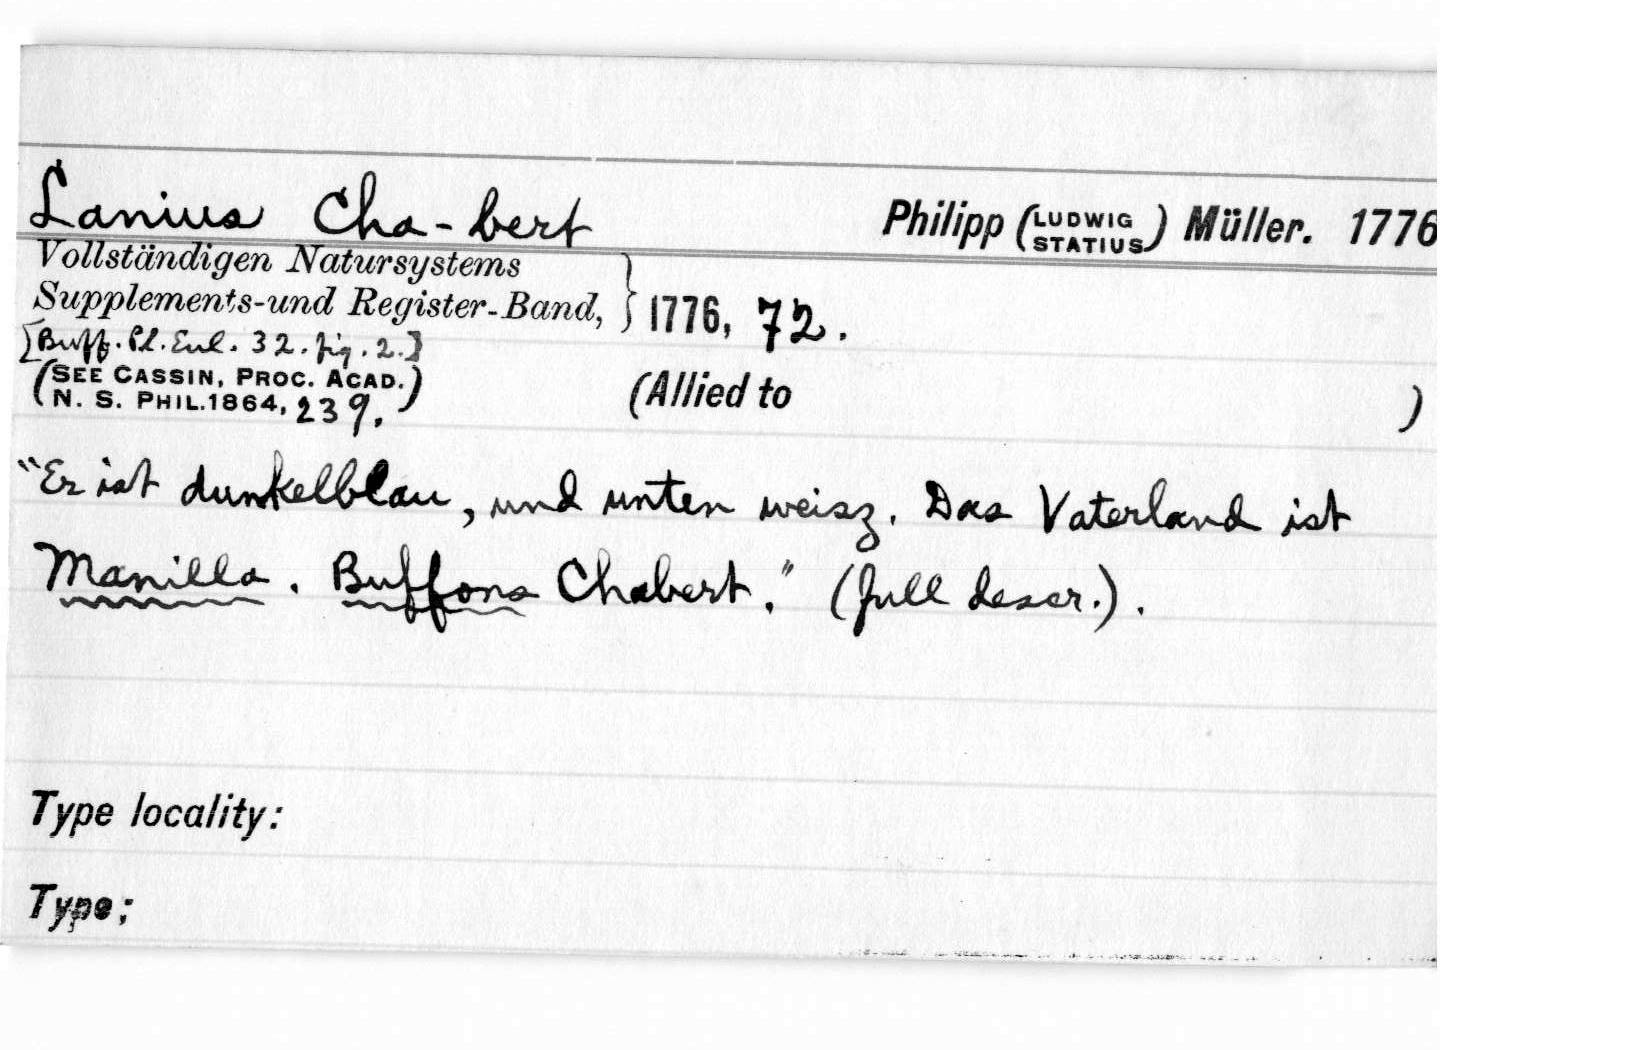 Lanius Cha-bert Philipp (LUDWIG STATIUS) Müller. 1776
Vollständigen Natursystems
Supplements-und Register-Band, } 1776, 72.
[Buff. Pl. Enl. 32. fig. 2.]
(SEE CASSIN, PROC. ACAD.
N. S. PHIL. 1864, 239.) (Allied to )
"Er ist dunkelblau, und unten weisz. Das Vaterland ist
Manilla. Buffons Chabert." (full descr.).
Type locality:
Type: